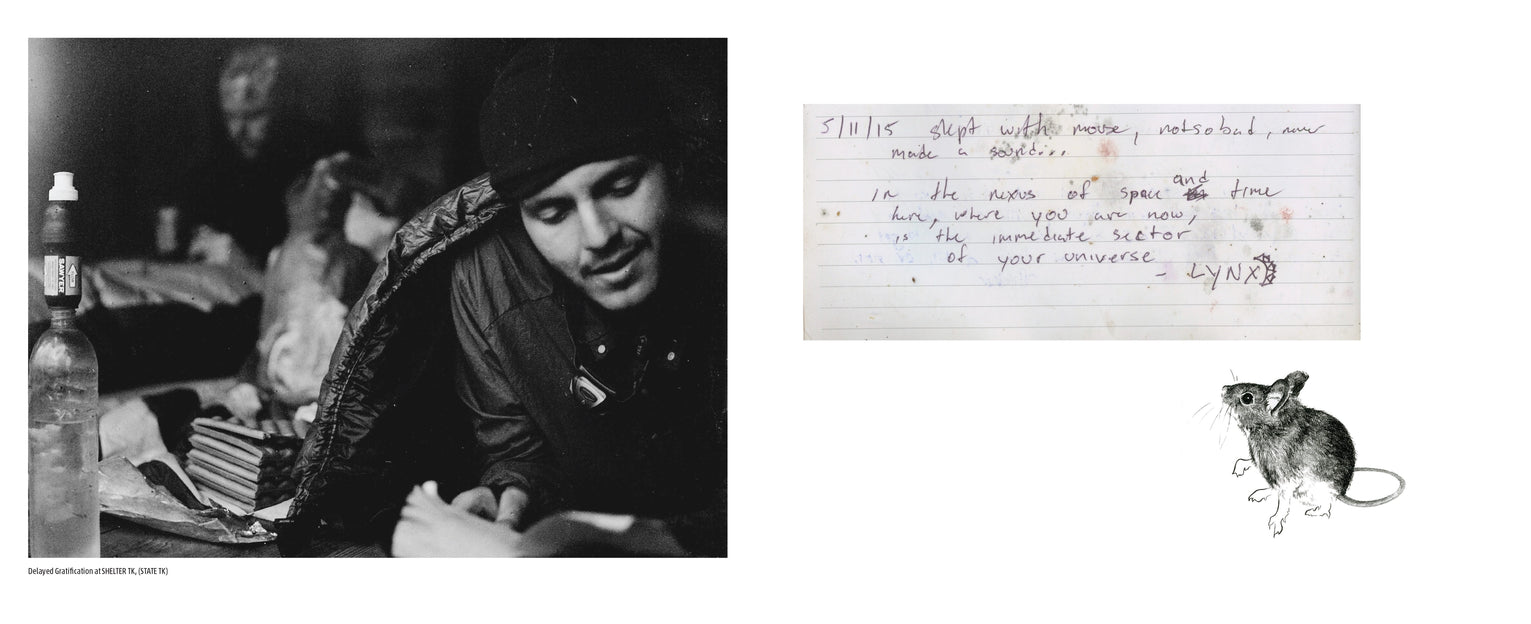 SAWYER
Delayed Gratification at SHELTER TK, (STATE TK)
5/11/15 slept with mouse, notsobad, never
made a sound...
in the nexus of space and time
here, where you are now,
is the immediate sector
of your universe
- LYNX